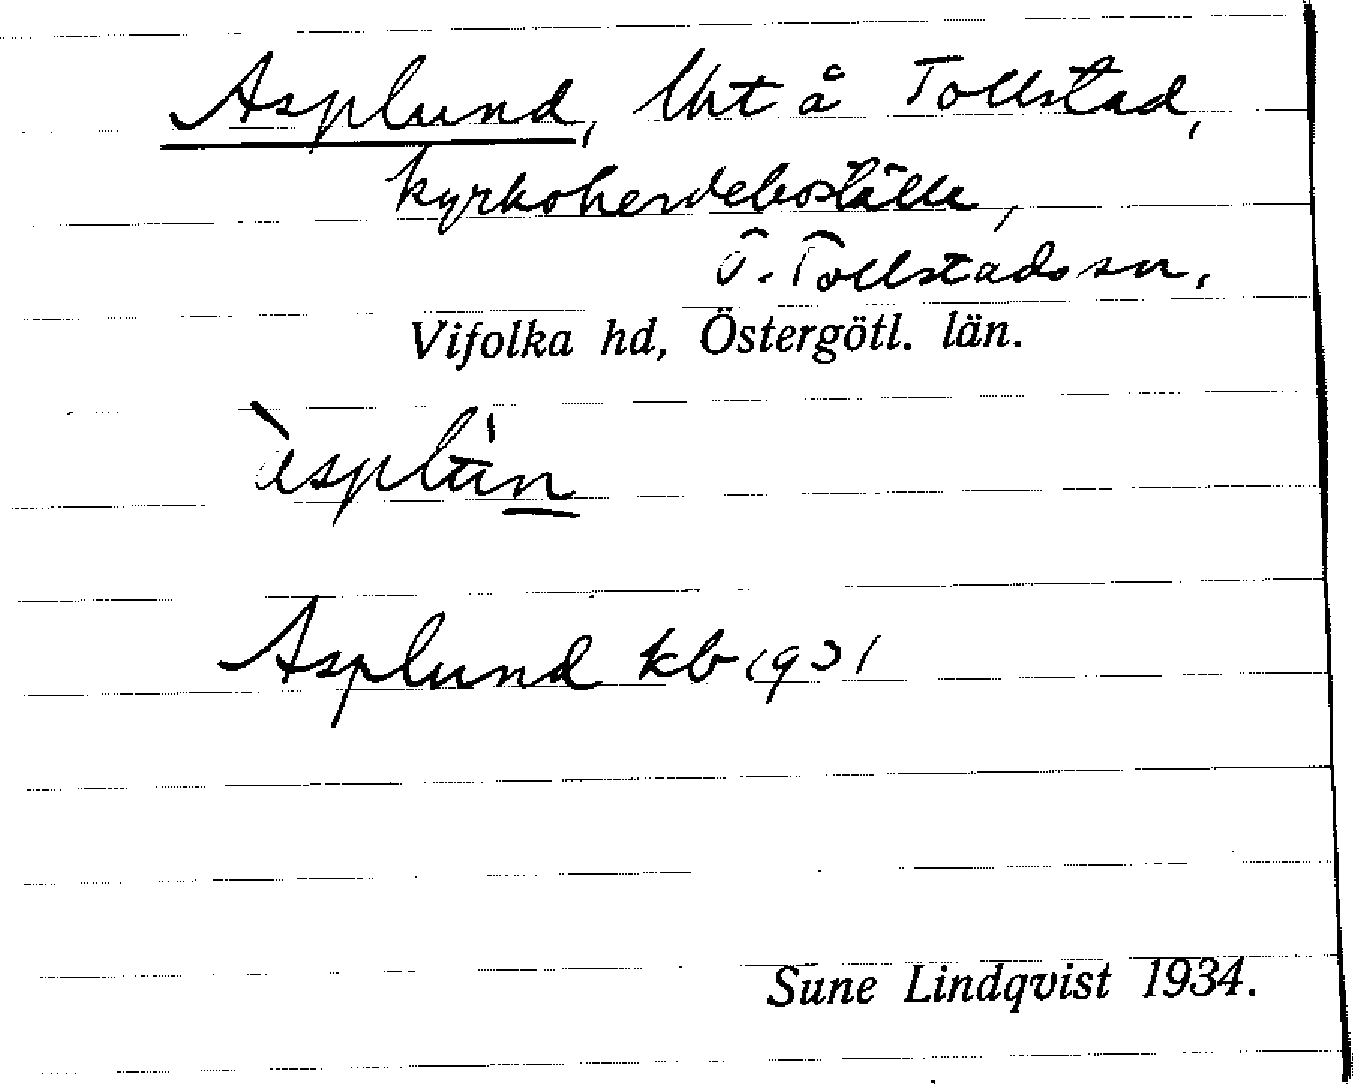 Asplund, lht å Tollstad,
kyrkoherdeboställe,
V. Tollstads sn,
Vifolka hd, Östergötl. län.
àsplun
Asplund kb 1931
Sune Lindqvist 1934.